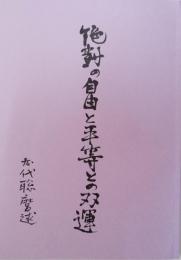 絶對の自由と平等との双運
田代聡麿述